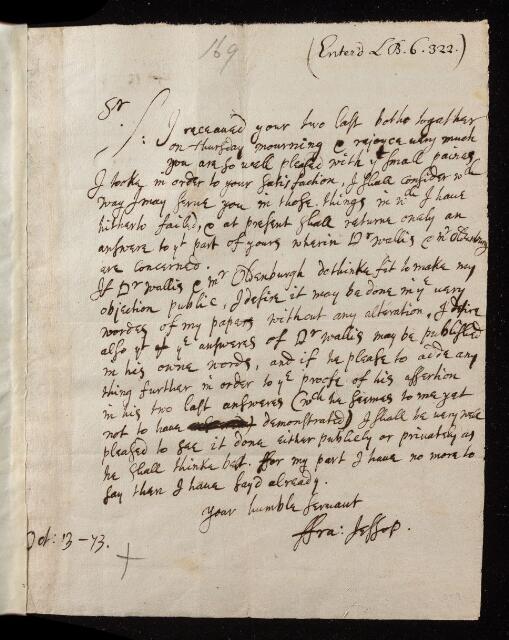 169
(Enterd LB. 6. 322.)
Sr
I receaued your two last boths together
on thursday mourning & rejoyce uery much
you are so well pleased with ye small paines
I tooke in order to your satisfaction, I shall consider wch
way I may serue you in those things in wch I have
hitherto failed, & at present shall returne onely an
answere to yt part of yours wherein Dr wallis & mr Oldenburg
are concerned.
If Dr wallis & mr Oldenburgh do thinke fit to make my
objection public, I desire it may be done in ye uery
wordes of my papers without any alteration, I desire
also yt ye answeres of Dr wallis may be published
in his owne words, and if he please to adde any
thing further in order to ye proofe of his assertion
in his two last answeres (wch he seemes to me yet
not to have demonstrated) I shall be uery well
pleased to see it done either publicly or privately as
he shall thinke best. ffor my part I have no more to
say then I have sayd already.
your humble seruant
ffra: Jessop.
Oct: 13 - 73.